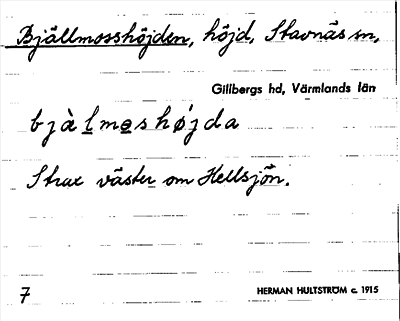 Bjällmosshöjden, höjd, Stavnäs sn,
Gillbergs hd, Värmlands län
bjàlmeshǿjda
Strax väster om Hellsjön.
7
HERMAN HULTSTRÖM c. 1915